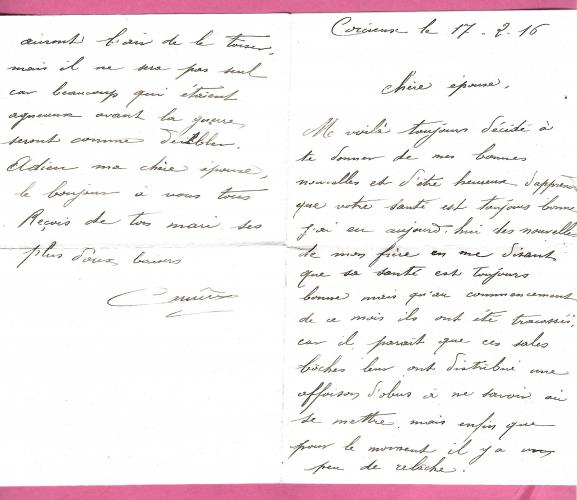 Corcieux le 17. 2. 16
Chère épouse.
Me voilà toujours décidé à
te donner de mes bonnes
nouvelles et d'être heureux d'apprendre
que votre santé est toujours bonne
j'ai eu aujourd'hui des nouvelles
de mon frère en me disant
que sa santé est toujours
bonne mais qu'au commencement
de ce mois ils ont été tracassés,
car il parait que ces sales
bôches leur ont distribué une
affoison d'obus à ne savoir où
se mettre, mais enfin que
pour le moment il y a un
peu de relâche.
auront l'air de le toiser
mais il ne sera pas seul
car beaucoup qui étaient
avant la guerre
seront comme
Adieu ma chère épouse,
le bonjour à vous tous
Reçois de ton mari ses
plus doux baisers